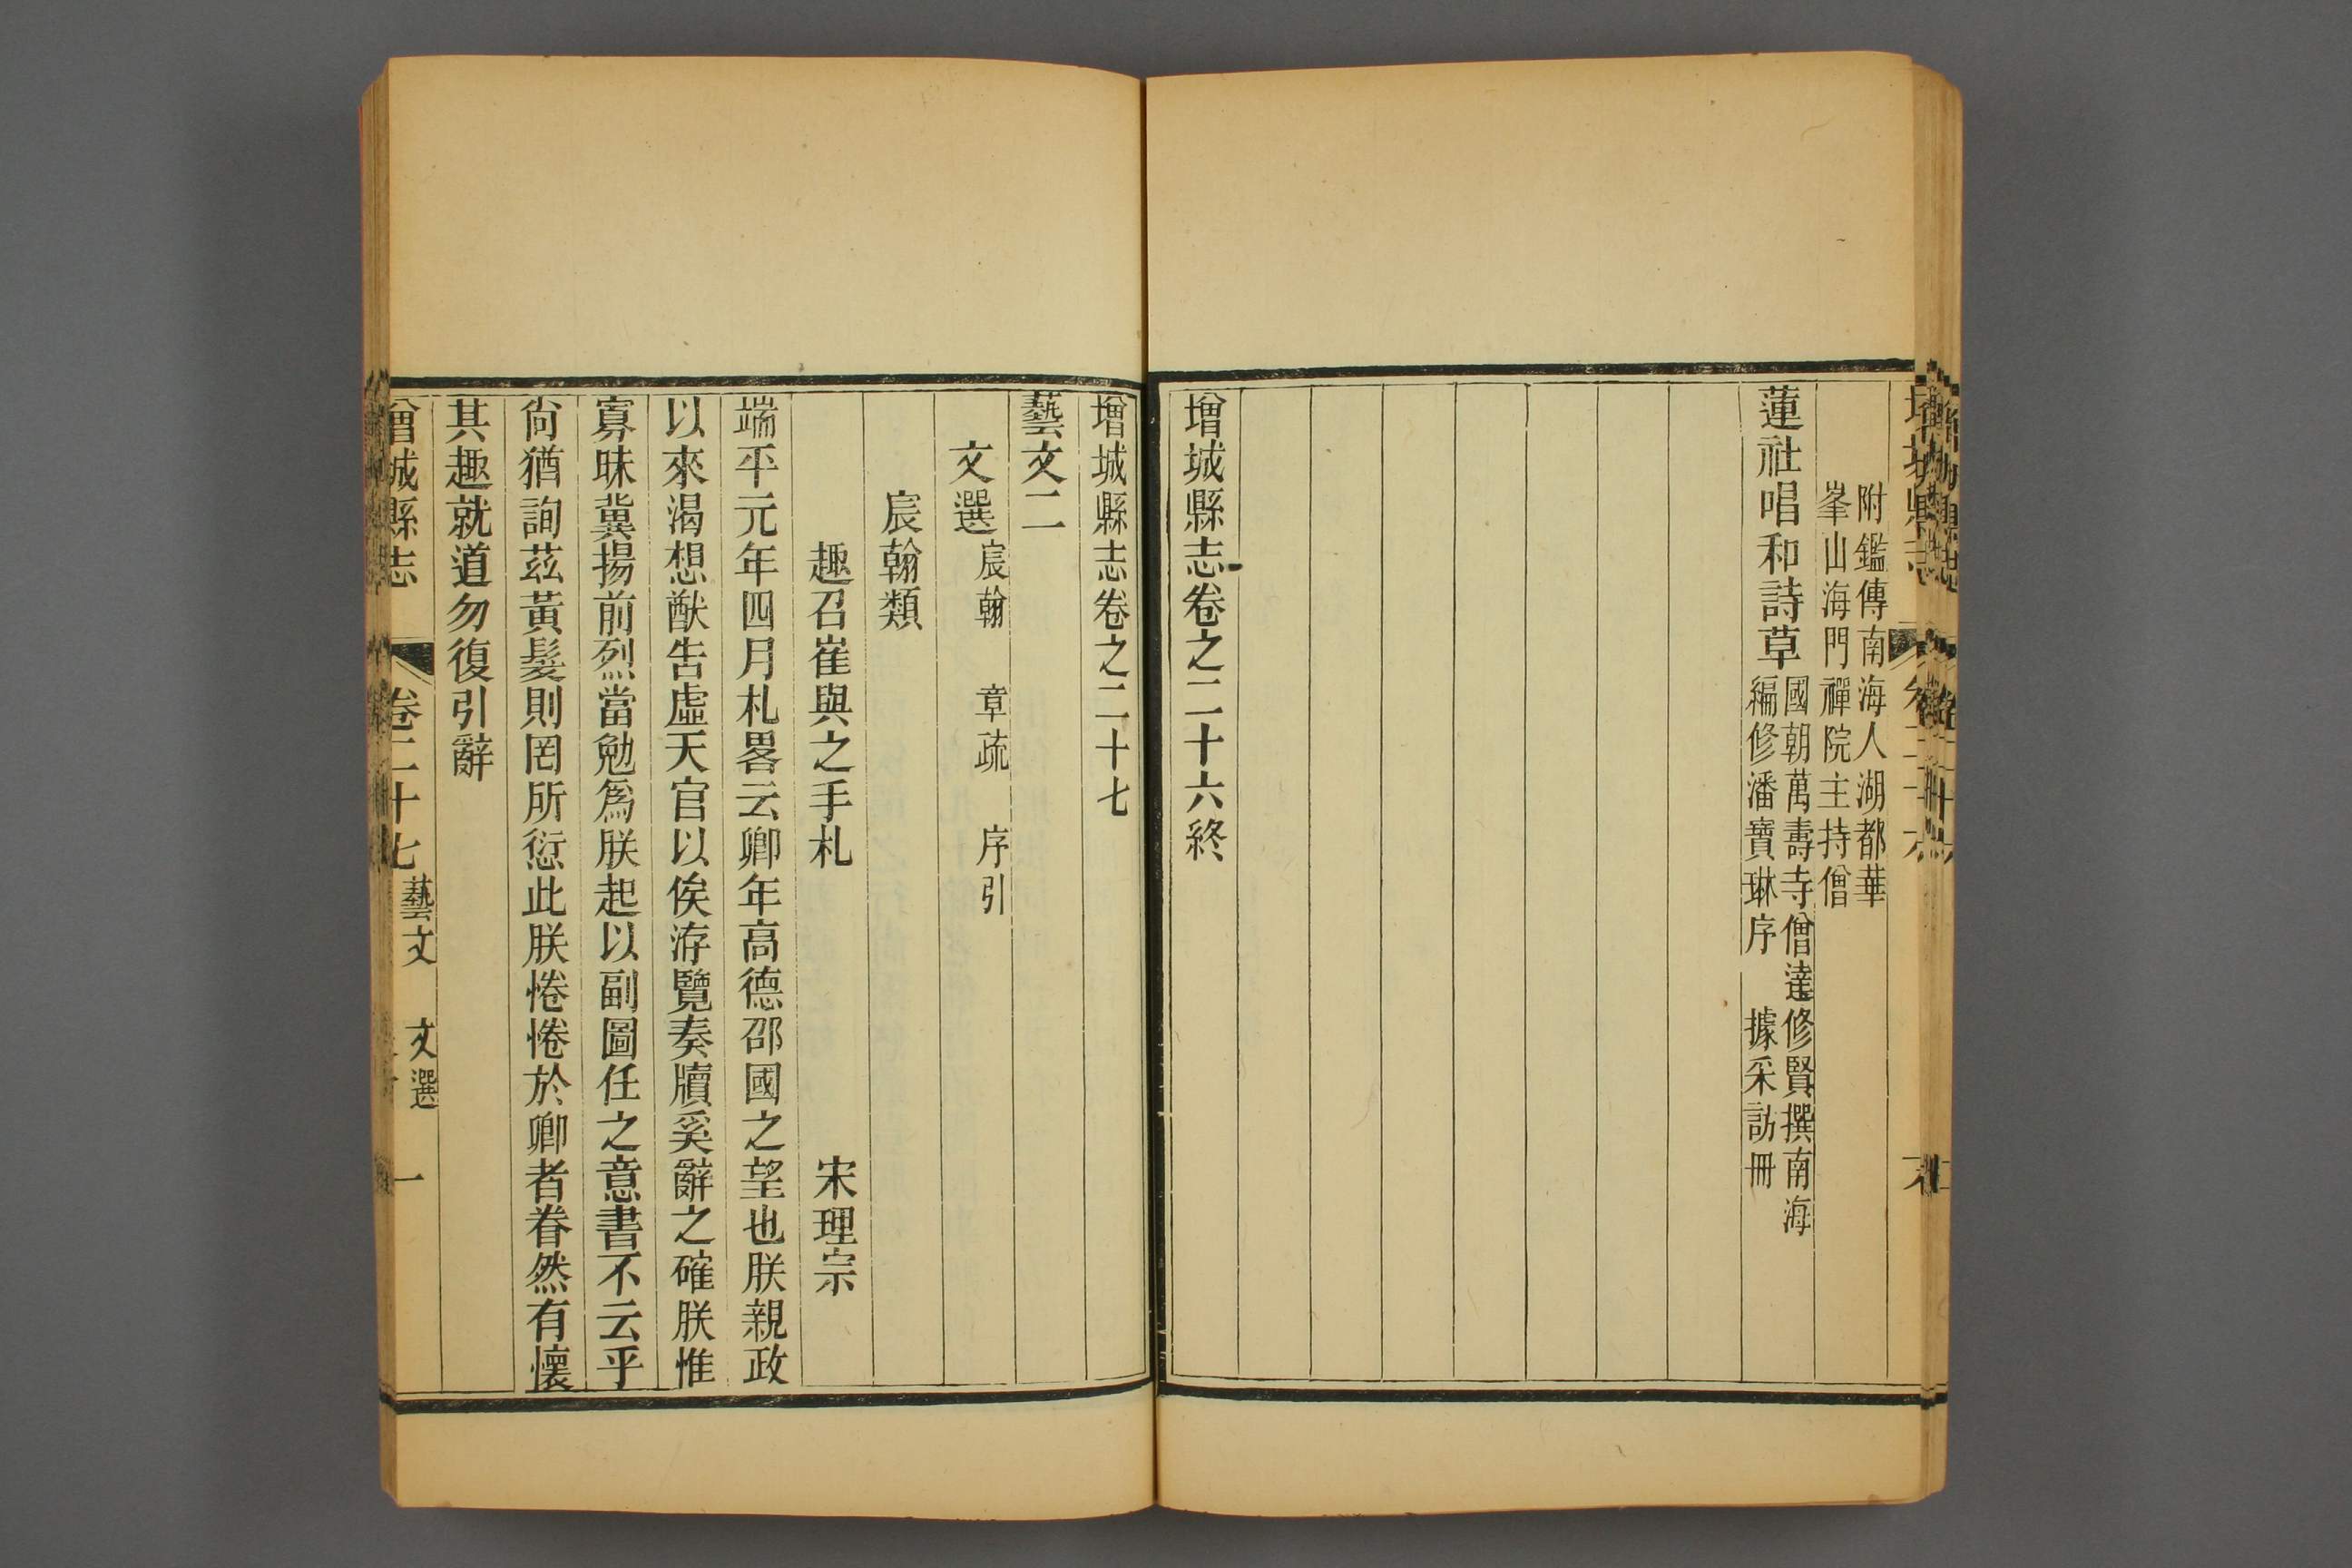 附鑑傳南海人湖都華
峯山海門禪院主持僧
蓮社唱和詩草
國朝萬壽寺僧達修賢撰南海
編修潘寶琳序　據采訪冊
增城縣志卷之二十六終
增城縣志卷之二十七
藝文二
文選 宸翰　章疏　序引
宸翰類
趣召崔與之手札　宋理宗
端平元年四月札畧云卿年高德邵國之望也朕親政
以來渴想猷告虛天官以俟洊覽奏牘奚辭之確朕惟
寡昧冀揚前烈當勉爲朕起以副圖任之意書不云乎
尙猶詢茲黃髮則罔所愆此朕惓惓於卿者眷然有懷
其趣就道勿復引辭
增城縣志　卷二十七 藝文　文選　一